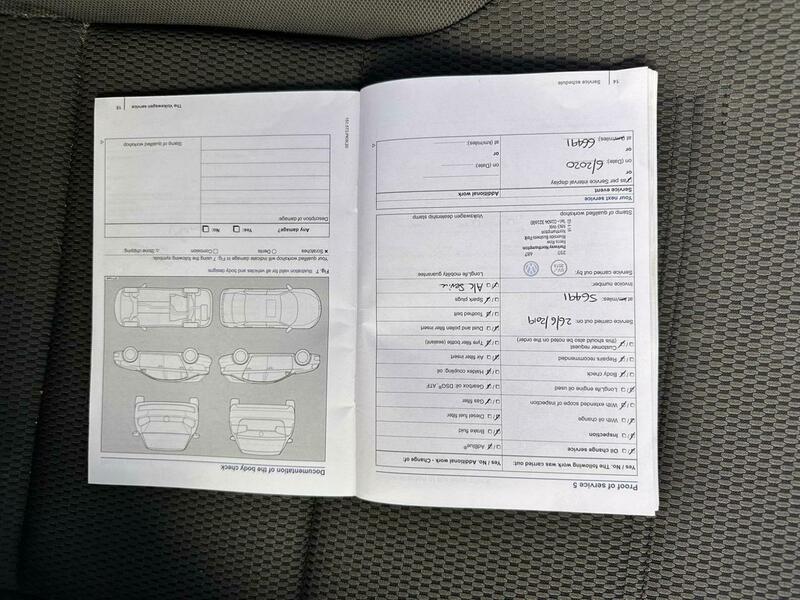 Proof of service 5
Yes No The following work was carried out:
Oil change service
Inspection
With oil change
With extended scope of inspection
LongLife engine oil used
Body check
Repairs recommended
Customer request
(this should be also be noted on the order)
Service carried out on: 26/6/2019
at km/miles: 56491
Invoice number:
Service carried out by:
Northampton
Stamp of qualified workshop
Yes No Additional work - Change of:
AdBlue®
Brake fluid
Diesel fuel filter
Gas filter
Gearbox oil DSG® ATF
Haldex coupling: oil
Air filter insert
Tyre filler bottle (sealant)
Dust and pollen filter insert
Toothed belt
Spark plugs
A/c Service
LongLife mobility guarantee
Volkswagen dealership stamp
Your next service
Service event
Additional work
as per Service interval display
or
on (Date): 6/2020
or
at km/miles: 66491
on (Date):
or
at (km/miles):
14
Service schedule
Documentation of the body check
Fig. 7 Illustration valid for all vehicles and body designs
Your qualified workshop will indicate damage in Fig. 7 using the following symbols.
× Scratches
○ Dents
□ Corrosion
△ Stone chipping
Any damage?
Yes:
No:
Description of damage:
Stamp of qualified workshop
The Volkswagen service
15